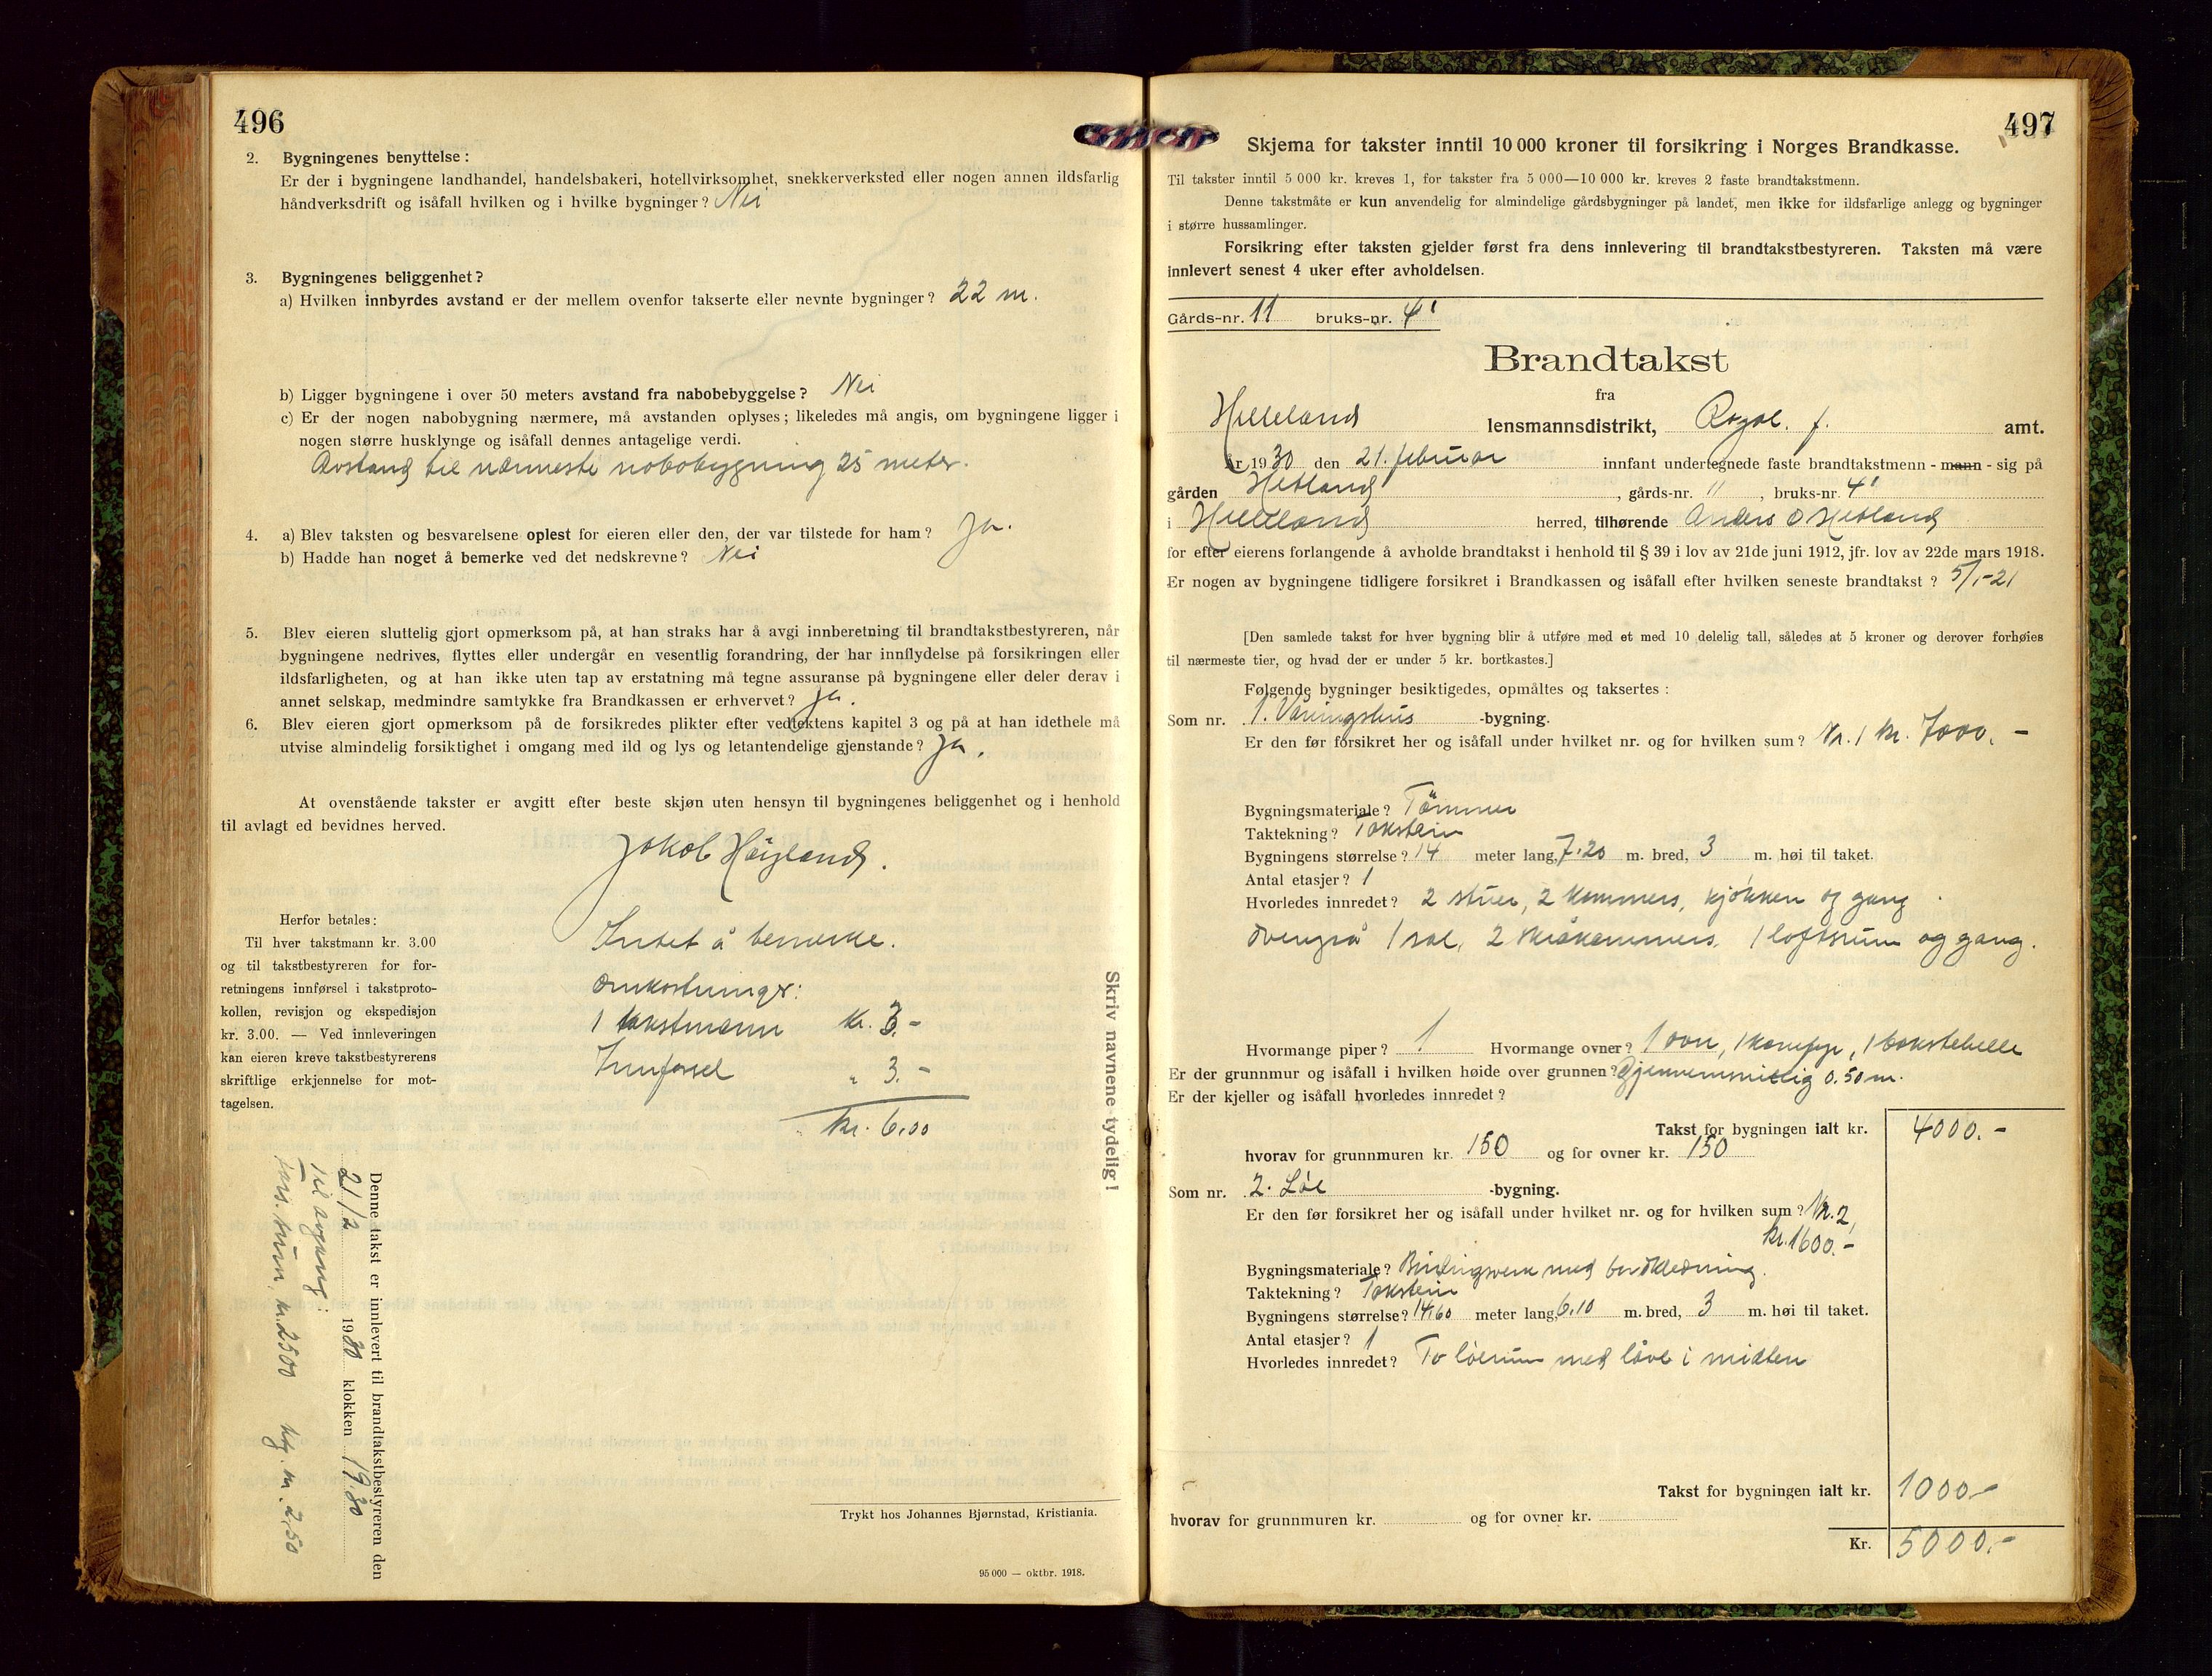 496
2. Bygningenes benyttelse:
Er der i bygningene landhandel, handelsbakeri, hotellvirksomhet, snekkerverksted eller nogen annen ildsfarlig
håndverksdrift og isåfall hvilken og i hvilke bygninger? Nei
3. Bygningenes beliggenhet?
a) Hvilken innbyrdes avstand er der mellem ovenfor takserte eller nevnte bygninger? 22 m.
b) Ligger bygningene i over 50 meters avstand fra nabobebyggelse? Nei
c) Er der nogen nabobygning nærmere, må avstanden oplyses; likeledes må angis, om bygningene ligger i
nogen større husklynge og isåfall dennes antagelige verdi.
Avstand til nærmeste nabobygning 25 meter.
4. a) Blev taksten og besvarelsene oplest for eieren eller den, der var tilstede for ham? Ja.
b) Hadde han noget å bemerke ved det nedskrevne? Nei
5. Blev eieren sluttelig gjort opmerksom på, at han straks har å avgi innberetning til brandtakstbestyreren, når
bygningene nedrives, flyttes eller undergår en vesentlig forandring, der har innflydelse på forsikringen eller
ildsfarligheten, og at han ikke uten tap av erstatning må tegne assuranse på bygningene eller deler derav i
annet selskap, medmindre samtykke fra Brandkassen er erhvervet? Ja.
6. Blev eieren gjort opmerksom på de forsikredes plikter efter vedtektens kapitel 3 og på at han idethele må
utvise almindelig forsiktighet i omgang med ild og lys og letantendelige gjenstande? Ja.
At ovenstående takster er avgitt efter beste skjøn uten hensyn til bygningenes beliggenhet og i henhold
til avlagt ed bevidnes herved.
Jakob Høyland.
Herfor betales:
Til hver takstmann kr. 3.00
og til takstbestyreren for for-
retningens innførsel i takstproto-
kollen, revisjon og ekspedisjon
kr. 3.00. — Ved innleveringen
kan eieren kreve takstbestyrerens
skriftlige erkjennelse for mot-
tagelsen.
Intet å bemerke.
Omkostninger:
1 takstmann kr. 3.-
Innførsel " 3.-
kr. 6,00
Skriv navnene tydelig!
Denne takst er innlevert til brandtakstbestyreren den
21/2 1930 klokken 19.30
Til avgang:
Fors. sum kr. 2500 ktg. kr. 2.50
Trykt hos Johannes Bjørnstad, Kristiania.
95 000 — oktbr. 1918.
497
Skjema for takster inntil 10 000 kroner til forsikring i Norges Brandkasse.
Til takster inntil 5 000 kr. kreves 1, for takster fra 5 000—10 000 kr. kreves 2 faste brandtakstmenn.
Denne takstmåte er kun anvendelig for almindelige gårdsbygninger på landet, men ikke for ildsfarlige anlegg og bygninger
i større hussamlinger.
Forsikring efter taksten gjelder først fra dens innlevering til brandtakstbestyreren. Taksten må være
innlevert senest 4 uker efter avholdelsen.
Gårds-nr. 11 bruks-nr. 4
Brandtakst
fra
Helleland lensmannsdistrikt, Rogal. f. amt.
År 1930 den 21. februar innfant undertegnede faste brandtakstmenn - mann - sig på
gården Hetland, gårds-nr. 11, bruks-nr. 4
i Helleland herred, tilhørende Anders O Hetland
for efter eierens forlangende å avholde brandtakst i henhold til § 39 i lov av 21de juni 1912, jfr. lov av 22de mars 1918.
Er nogen av bygningene tidligere forsikret i Brandkassen og isåfall efter hvilken seneste brandtakst? 5/1-21
[Den samlede takst for hver bygning blir å utføre med et med 10 delelig tall, således at 5 kroner og derover forhøies
til nærmeste tier, og hvad der er under 5 kr. bortkastes.]
Følgende bygninger besiktigedes, opmåltes og taksertes:
Som nr. 1. Våningshus -bygning.
Er den før forsikret her og isåfall under hvilket nr. og for hvilken sum? Nr. 1 kr. 7000.-
Bygningsmateriale? Tømmer
Taktekning? Takstein
Bygningens størrelse? 14 meter lang, 7.20 m. bred, 3 m. høi til taket.
Antal etasjer? 1
Hvorledes innredet? 2 stuer, 2 kammers, kjøkken og gang
ovenpå 1 sal, 2 skråkammers, 1 loftsrum og gang.
Hvormange piper? 1 Hvormange ovner? 1 ovn, 1 komfyr, 1 bakstehelle
Er der grunnmur og isåfall i hvilken høide over grunnen? Gjennemsnitlig 0.50 m.
Er der kjeller og isåfall hvorledes innredet?
Takst for bygningen ialt kr. 4000.-
hvorav for grunnmuren kr. 150 og for ovner kr. 150
Som nr. 2. Løe -bygning.
Er den før forsikret her og isåfall under hvilket nr. og for hvilken sum? Nr. 2,
kr. 1600.-
Bygningsmateriale? Bindingsverk med bordklædning.
Taktekning? Takstein
Bygningens størrelse? 14,60 meter lang, 6.10 m. bred, 3 m. høi til taket.
Antal etasjer? 1
Hvorledes innredet? To løerum med låve i midten
Takst for bygningen ialt kr. 1000.-
hvorav for grunnmuren kr. og for ovner kr.
Kr. 5000.-